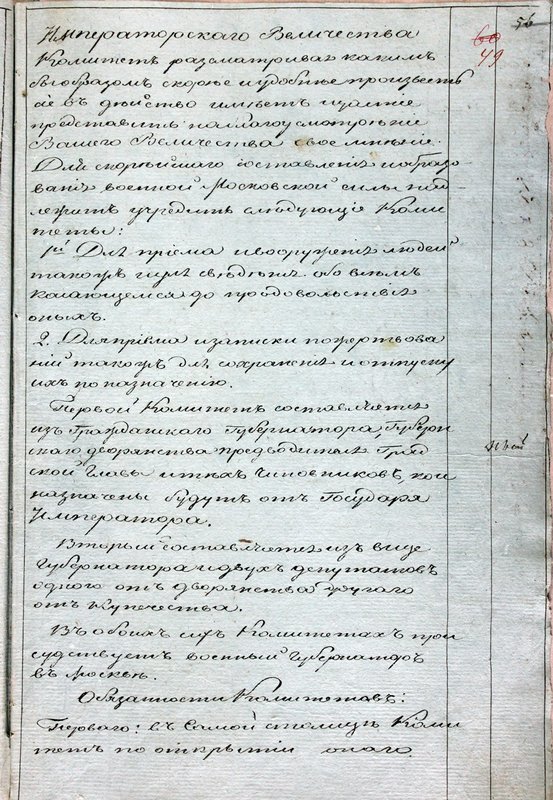 56
60
49
Императорскаго Величества
Комитетъ разсматривая какимъ
бы образомъ скорѣе и удобнѣе произвесть
сіе въ дѣйство имѣетъ щастіе
представить на благоусмотрѣніе
Вашего Величества свое мнѣніе.
Для скорѣйшаго составленія и образо
ванія военной Московской силы над-
лежитъ учредить слѣдующіе Коми
теты:
1й Для пріема и вооруженія людей
такожъ и для свѣденія обо всемъ
касающемся до продовольствія
оныхъ.
2. Для пріема и записки пожертвова
ній такожъ для сохраненія и отпуску
ихъ по назначенію.
Первой Комитетъ составляется
изъ Гражданскаго Губернатора, Губерн
скаго дворянства предводителя Град
ской Главы и тѣхъ чиновниковъ, кои
назначены будутъ отъ Государя
Императора.
Вторый составляется изъ вице
Губернатора и двухъ депутатовъ
одного отъ дворянства другаго
отъ купечества.
Въ обоихъ сихъ Комитетахъ при
судствуетъ военный Губернаторъ
въ Москвѣ.
Обязанности Комитетовъ:
Перваго: въ самой столицѣ Коми
тетъ по открытіи онаго